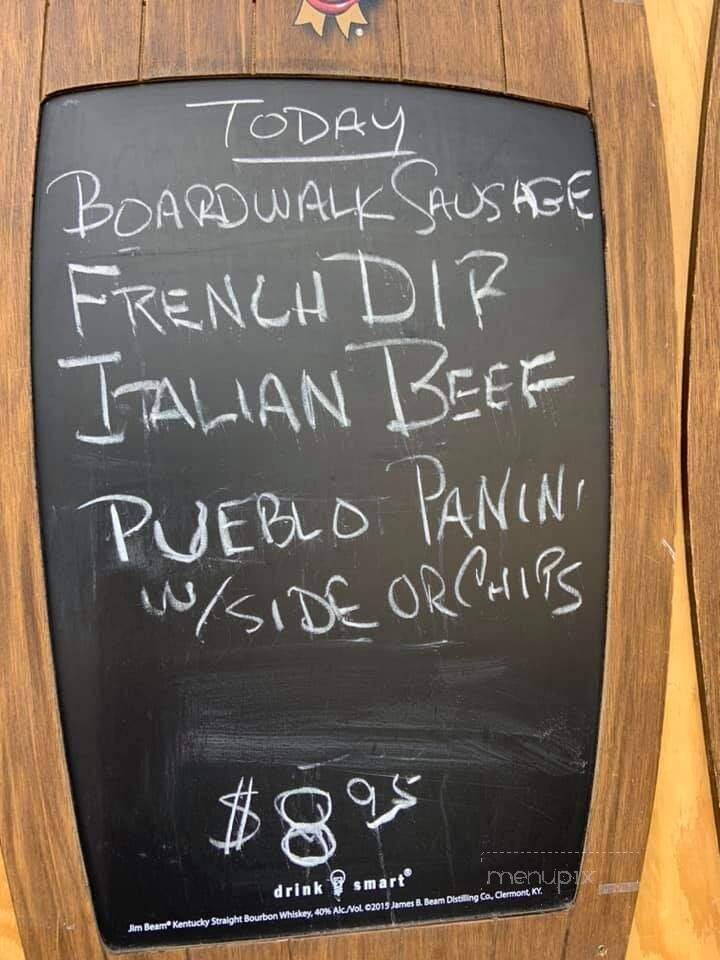 TODAY
BOARDWALK SAUSAGE
FRENCH DIP
ITALIAN BEEF
PUEBLO PANINI
W/SIDE OR CHIPS
$8.95
drink smart®
Jim Beam® Kentucky Straight Bourbon Whiskey, 40% Alc./Vol. ©2015 James B. Beam Distilling Co., Clermont, KY.
menupix